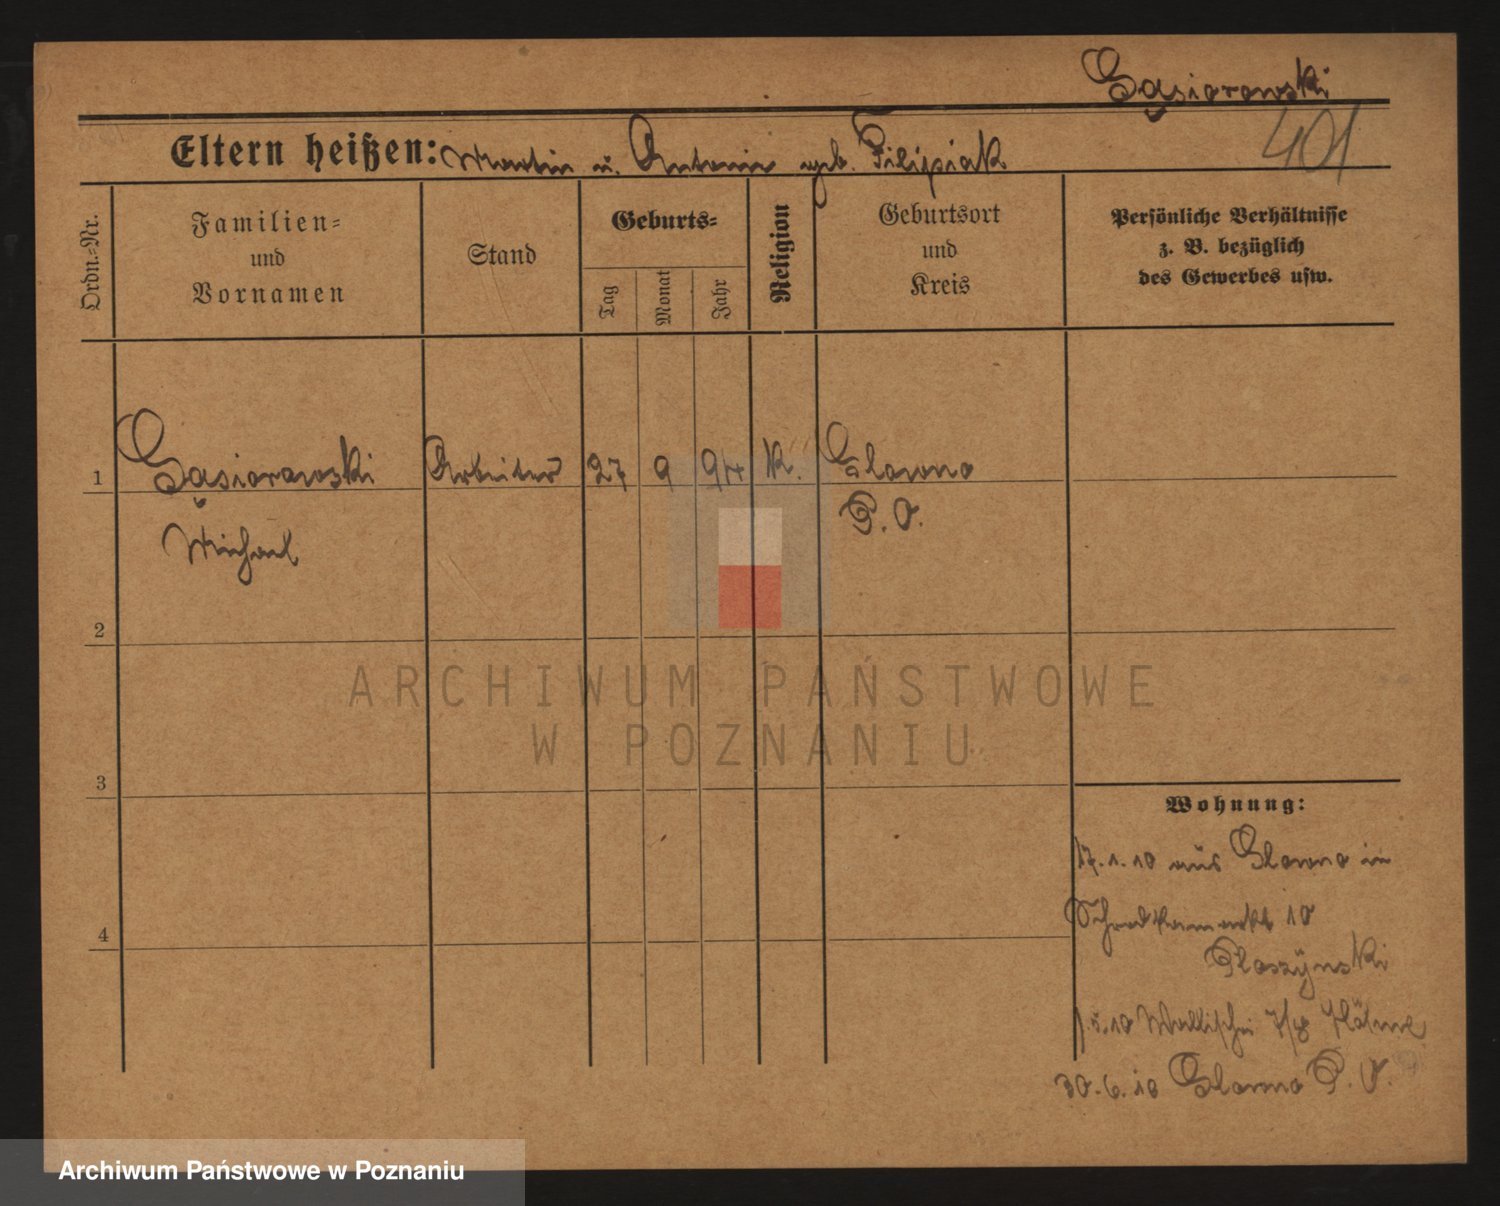 Gąsiorowski
401
Eltern heißen: Martin u. Antonie geb. Filipiak
Ordn.-Nr.
Familien-
und
Vornamen
Stand
Geburts-
Tag
Monat
Jahr
Religion
Geburtsort
und
Kreis
Persönliche Verhältnisse
z. B. bezüglich
des Gewerbes usw.
1 Gąsiorowski Arbeiter 27 9 94 K. Glowno
Michael P. O.
2
3
4
Wohnung:
17.1.10 aus Glowno in
10
1.5.10 Wallischei 7/8
30.6.10 Glowno P. O.
ARCHIWUM PAŃSTWOWE
W POZNANIU
Archiwum Państwowe w Poznaniu